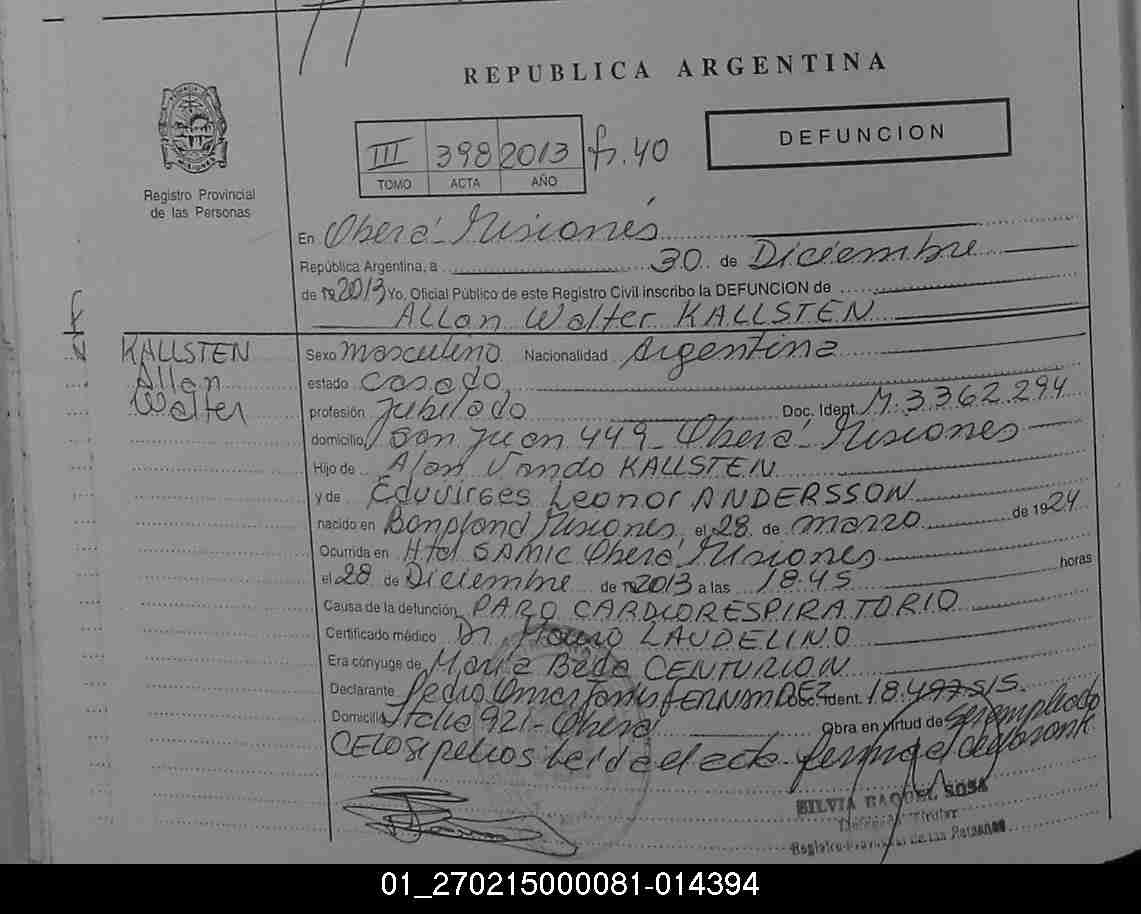 REPUBLICA ARGENTINA
DEFUNCION
III 398 2013 fs. 40
TOMO ACTA AÑO
Registro Provincial
de las Personas
En Oberá - Misiones
República Argentina, a 30 de Diciembre
de 2013 Yo, Oficial Público de este Registro Civil inscribo la DEFUNCION de
Allan Walter KALLSTEN
KALLSTEN
Allan
Walter
Sexo masculino Nacionalidad Argentina
estado casado
profesión Jubilado Doc. Ident. M. 3.362.294
domicilio San Juan 449 - Oberá - Misiones
Hijo de Alan Vando KALLSTEN
y de Eduvirges Leonor ANDERSSON
nacido en Bonpland Misiones el 28 de marzo de 1924
Ocurrida en Htal SAMIC Oberá Misiones
el 28 de Diciembre de 2013 a las 18.45 horas
Causa de la defunción PARO CARDIORESPIRATORIO
Certificado médico Dr. LAUDELINO
Era cónyuge de María Beda CENTURION
Declarante Pedro Omar FERNANDEZ Doc. Ident. 18.497.515.
Domicilio Italia 921 - Oberá Obra en virtud de ser empleado
CELO sepelios Leída el acta firma el declarante
SILVIA RAQUEL SOSA
Registro Provincial de las Personas
01_270215000081-014394